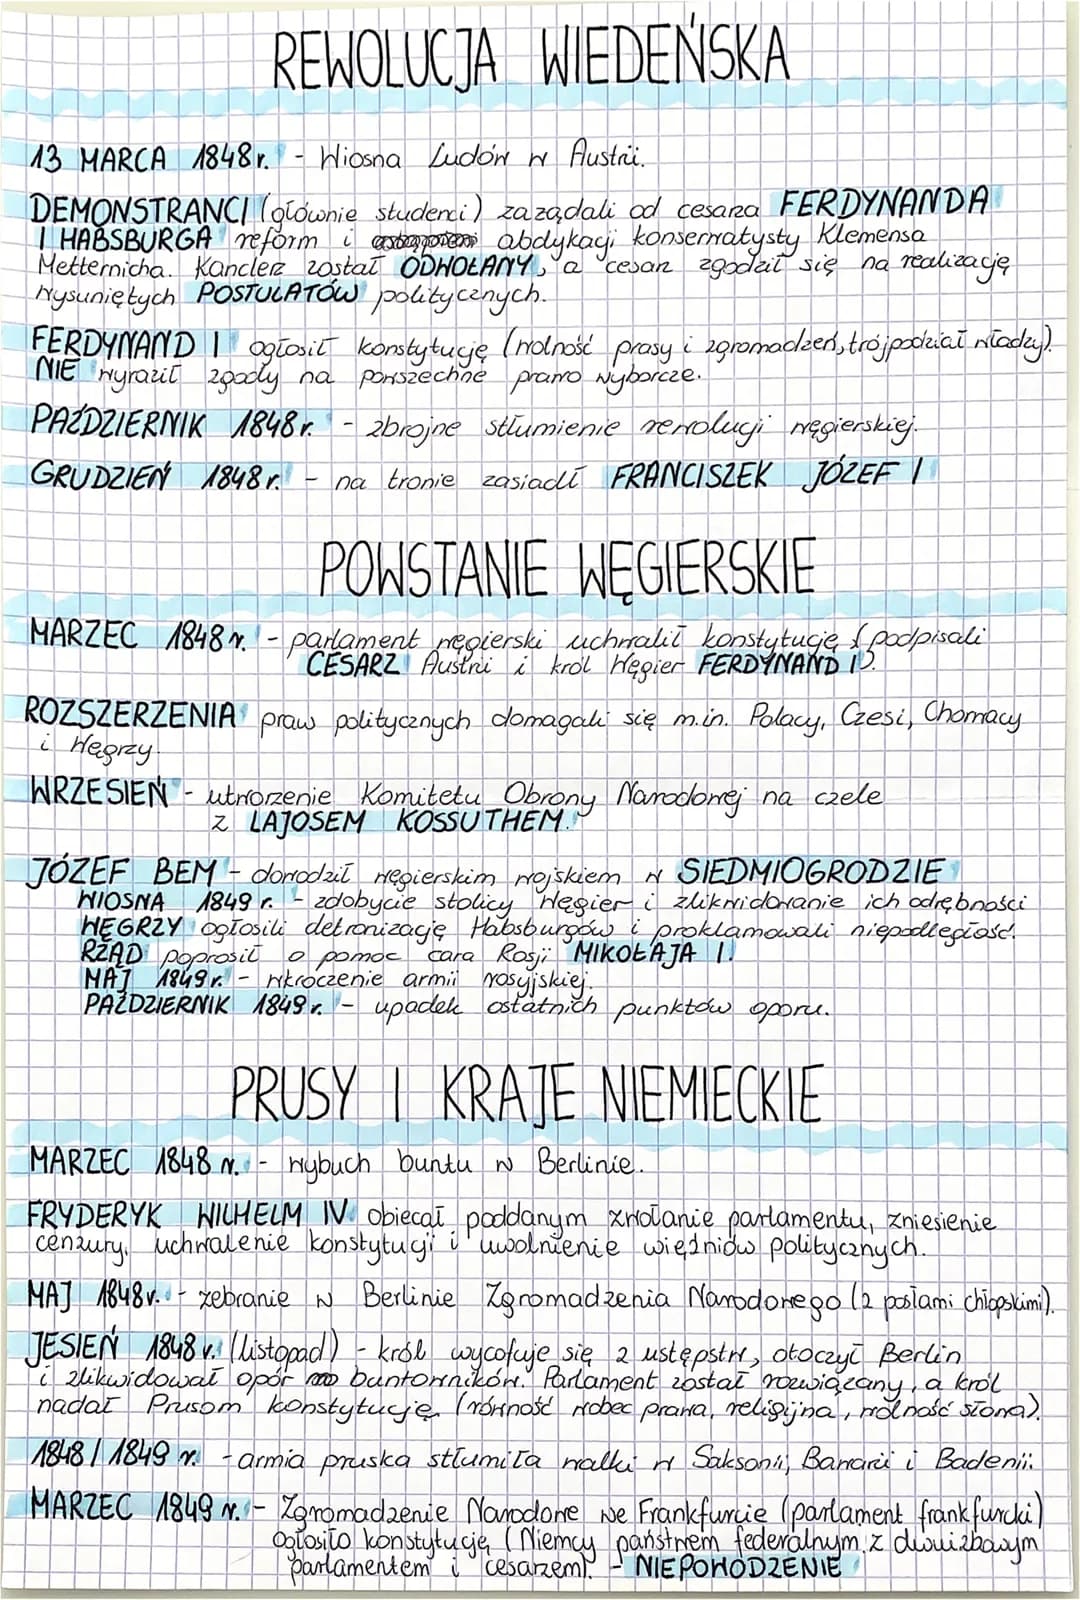 REWOLUCJA WIEDEŃSKA
13 MARCA 1848r. - Wiosna Ludów w Austrii.
DEMONSTRANCI (głównie studenci) zażądali od cesarza FERDYNANDA
I HABSBURGA reform i abdykacji konserwatysty Klemensa
Metternicha. Kanclerz został ODWOŁANY, a cesarz zgodził się na realizację
wysuniętych POSTULATÓW politycznych.
FERDYNAND I ogłosił konstytucję (wolność prasy i zgromadzeń, trójpodział władzy).
NIE wyraził zgody na powszechne prawo wyborcze.
PAŹDZIERNIK 1848r. - zbrojne stłumienie rewolucji węgierskiej.
GRUDZIEŃ 1848r. - na tronie zasiadł FRANCISZEK JÓZEF I
POWSTANIE WĘGIERSKIE
MARZEC 1848r. - parlament węgierski uchwalił konstytucję (podpisali
CESARZ Austrii i król Węgier FERDYNAND I).
ROZSZERZENIA praw politycznych domagali się m.in. Polacy, Czesi, Chorwacy
i Węgrzy.
WRZESIEŃ - utworzenie Komitetu Obrony Narodowej na czele
z LAJOSEM KOSSUTHEM.
JÓZEF BEM - dowodził węgierskim wojskiem w SIEDMIOGRODZIE
WIOSNA 1849 r. - zdobycie stolicy Węgier i zlikwidowanie ich odrębności
WĘGRZY ogłosili detronizację Habsburgów i proklamowali niepodległość.
RZĄD poprosił o pomoc cara Rosji MIKOŁAJA I.
MAJ 1849r. - wkroczenie armii rosyjskiej.
PAŹDZIERNIK 1849 r. - upadek ostatnich punktów oporu.
PRUSY I KRAJE NIEMIECKIE
MARZEC 1848 r. - wybuch buntu w Berlinie.
FRYDERYK WILHELM IV obiecał poddanym zwołanie parlamentu, zniesienie
cenzury, uchwalenie konstytucji i uwolnienie więźniów politycznych.
MAJ 1848r. - zebranie w Berlinie Zgromadzenia Narodowego (z posłami chłopskimi).
JESIEŃ 1848 r. (listopad) - król wycofuje się z ustępstw, otoczył Berlin
i zlikwidował opór buntowników. Parlament został rozwiązany, a król
nadał Prusom konstytucję (równość wobec prawa, religijna, wolność słowa).
1848 / 1849 r. - armia pruska stłumiła walki w Saksonii, Bawarii i Badenii.
MARZEC 1849 r. - Zgromadzenie Narodowe we Frankfurcie (parlament frankfurcki)
ogłosiło konstytucję (Niemcy państwem federalnym z dwuizbowym
parlamentem i cesarzem). - NIEPOWODZENIE